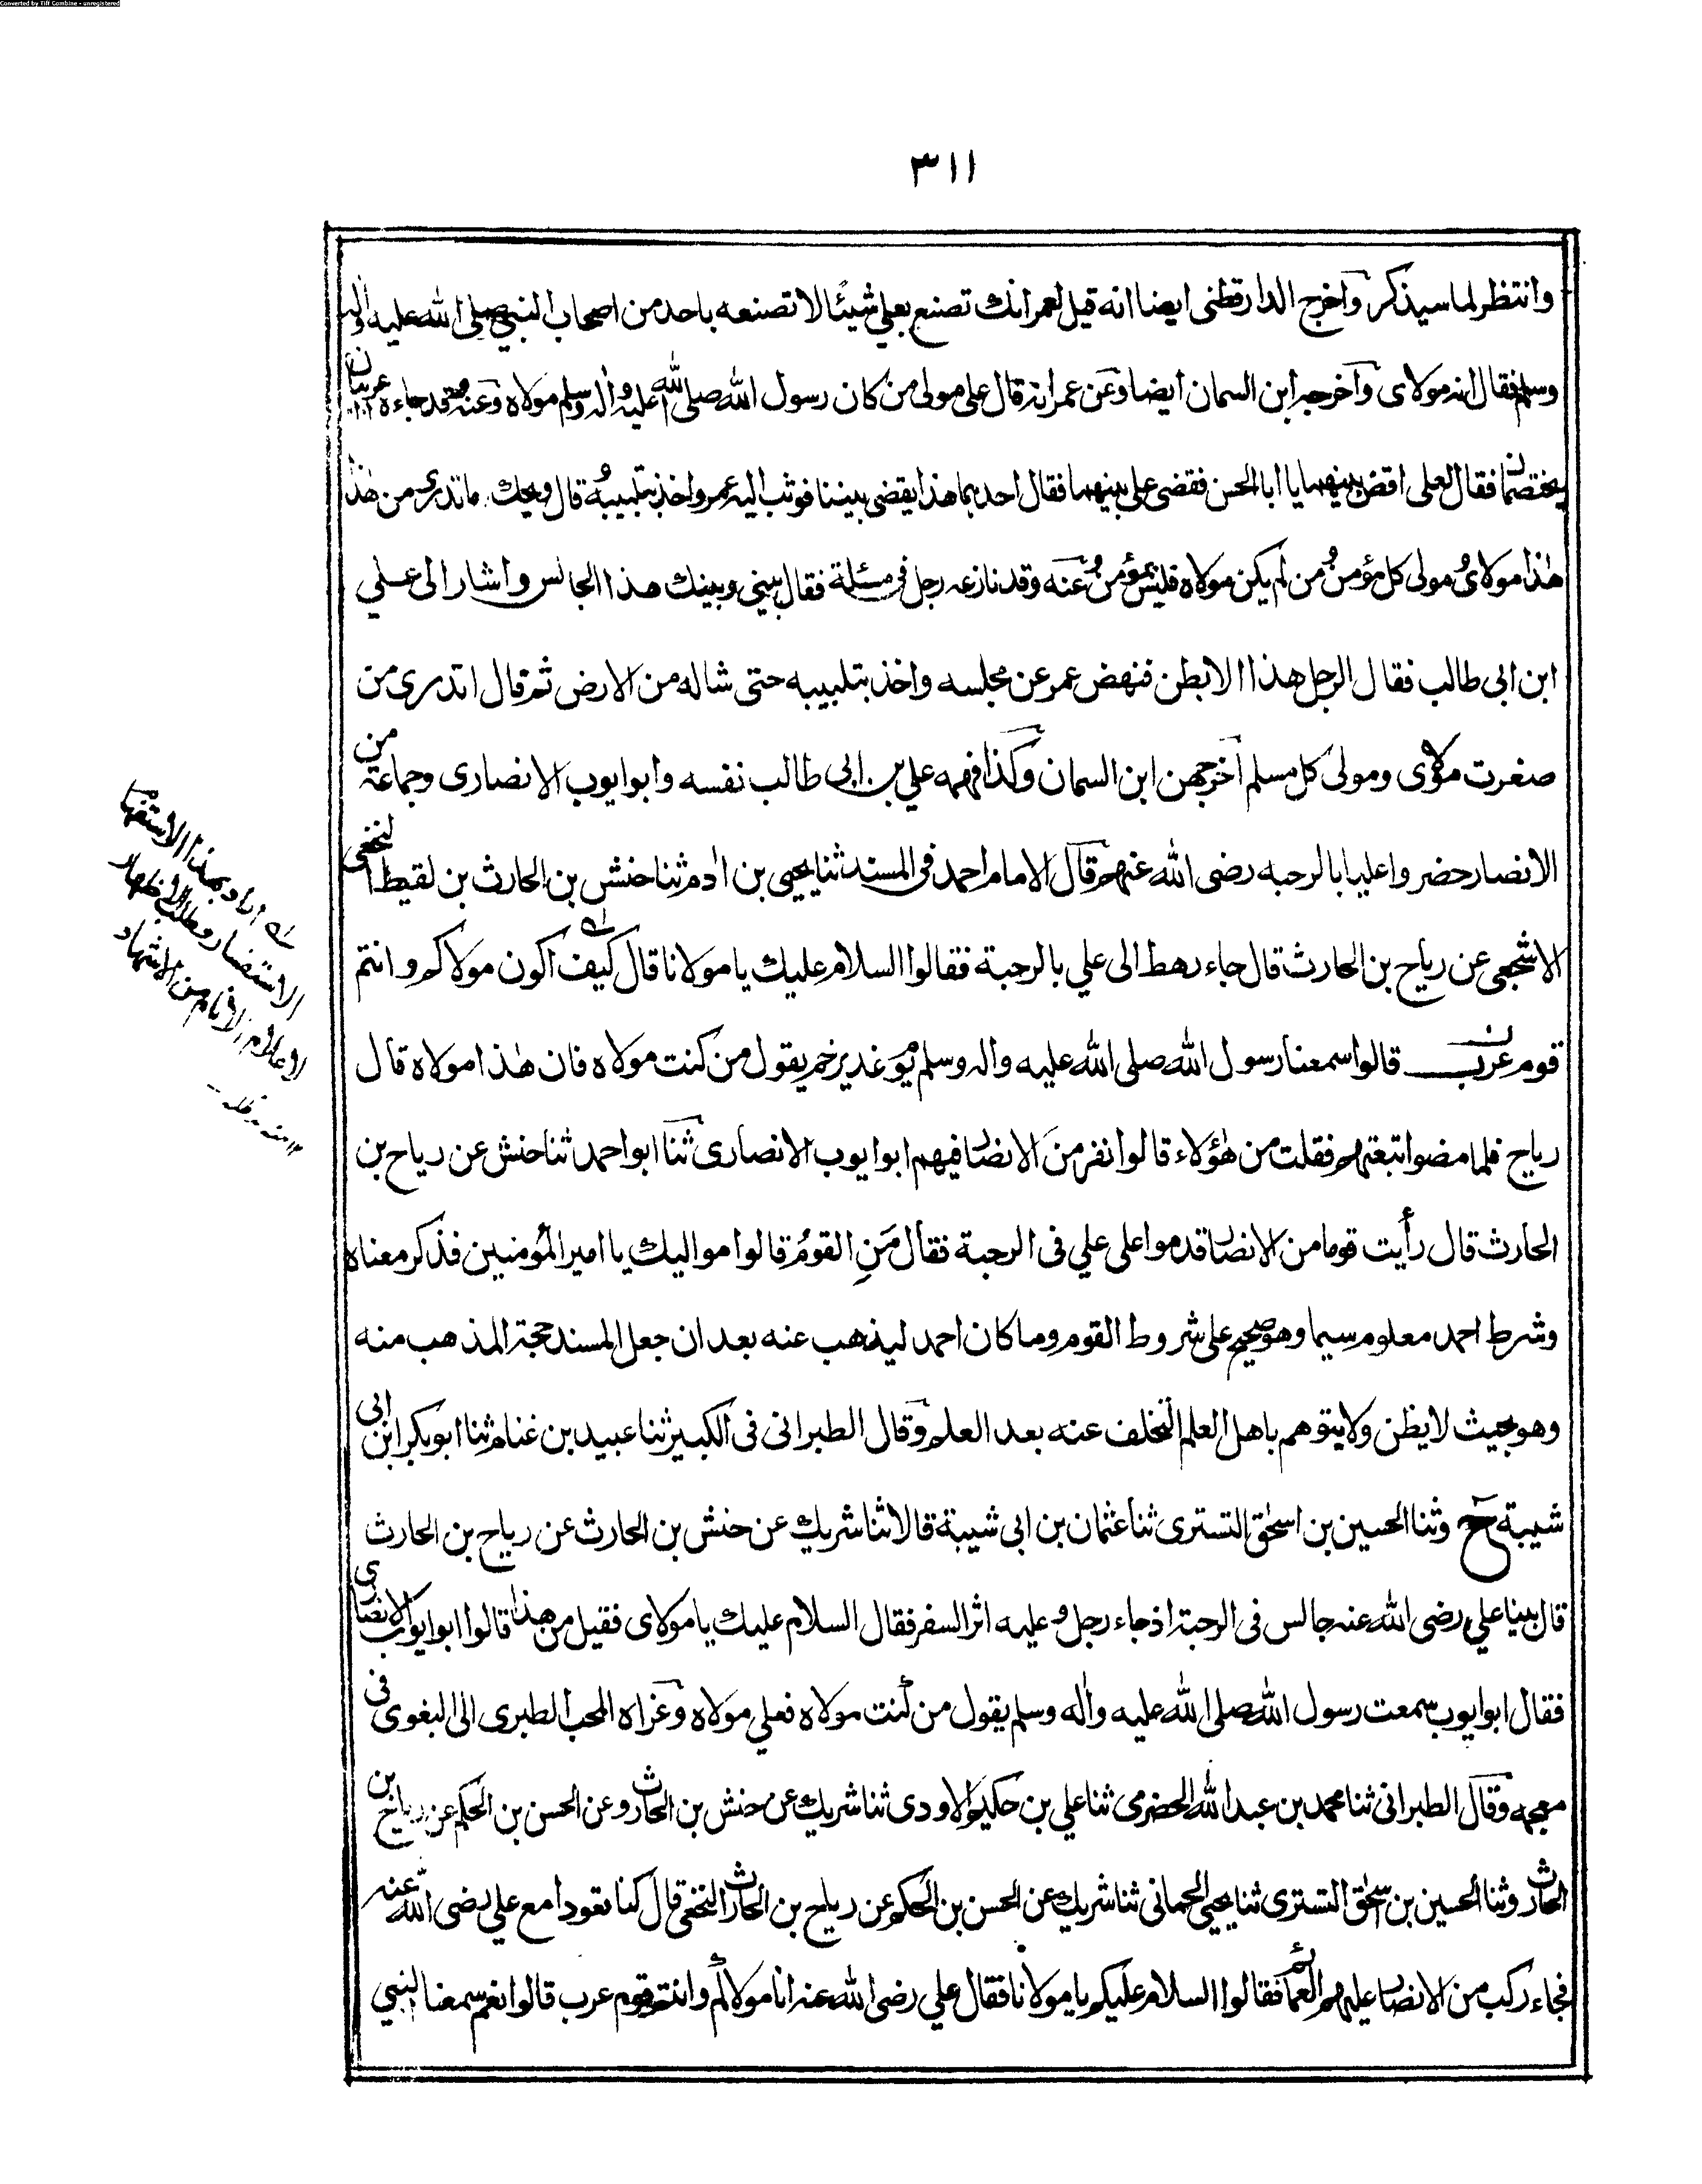 Converted by Tiff Combine - unregistered
٣١١
وانتظر لما سيذكر وآخرج الدارقطنى ايضا انه قيل لعمر انك تصنع بعلي شيئًا لا تصنعه باحد من اصحاب النبي صلى الله عليه واله
وسلم فقال انه مولاى وآخرجه ابن السمان ايضا وعن عمر انه قال على مولى من كان رسول الله صلى الله عليه واله وسلم مولاه وعنه وقد جاءه عربيان
يختصمان فقال لعلى اقض بينهما يا ابا الحسن فقضى على بينهما فقال احدهما هذا يقضى بيننا فوثب اليه عمر واخذ بتلبيبه وقال ويحك ما تدرى من هذا
هذا مولاى ومولى كل مؤمن ومن لم يكن مولاه فليس بمؤمن وعنه وقد نازعه رجل فى مسئلة فقال بينى وبينك هذا الجالس واشار الى علي
ابن ابى طالب فقال الرجل هذا الابطن فنهض عمر عن مجلسه واخذ بتلبيبه حتى شاله من الارض ثم قال اتدرى من
صغرت مولاى ومولى كل مسلم آخرجهن ابن السمان وكذا فهمه علي بن ابى طالب نفسه وابو ايوب الانصارى وجماعة من
الانصار حضروا عليا بالرحبه رضى الله عنهم قال الامام احمد فى المسند ثنا يحيى بن ادم ثنا حنش بن الحارث بن لقيط النخعى
الاشجعى عن رياح بن الحارث قال جاء رهط الى علي بالرحبة فقالوا السلام عليك يا مولانا قال كيف اكون مولاكم وانتم
قوم عرب قالوا سمعنا رسول الله صلى الله عليه واله وسلم يوم غدير خم يقول من كنت مولاه فان هذا مولاه قال
رياح فلما مضوا تبعتهم فقلت من هؤلاء قالوا نفر من الانصار فيهم ابو ايوب الانصارى ثنا ابو احمد ثنا حنش عن رياح بن
الحارث قال رأيت قوما من الانصار قدموا على علي فى الرحبة فقال مَنِ القومُ قالوا مواليك يا امير المؤمنين فذكر معناه
وشرط احمد معلوم سيما وهو صحيح على شروط القوم وما كان احمد ليذهب عنه بعد ان جعل المسند حجة المذهب منه
وهو بحيث لا يظن ولا يتوهم باهل العلم التخلف عنه بعد العلم وقال الطبرانى فى الكبير ثنا عبيد بن غنام ثنا ابو بكر ابن ابى
شيبة ح وثنا الحسين بن اسحق التسترى ثنا عثمان بن ابى شيبة قالا ثنا شريك عن حنش بن الحارث عن رياح بن الحارث
قال بينا علي رضى الله عنه جالس فى الرحبة اذ جاء رجل وعليه اثر السفر فقال السلام عليك يا مولاى فقيل من هذا قالوا ابو ايوب الانصارى
فقال ابو ايوب سمعت رسول الله صلى الله عليه واله وسلم يقول من كنت مولاه فعلي مولاه وعزاه المحب الطبرى الى البغوى فى
معجمه وقال الطبرانى ثنا محمد بن عبد الله الحضرمى ثنا علي بن حكيم الاودى ثنا شريك عن حنش بن الحارث وعن الحسن بن الحكم عن رياح بن
الحارث وثنا الحسين بن اسحق التسترى ثنا يحيى الحمانى ثنا شريك عن الحسن بن الحكم عن رياح بن الحارث النخعى قال كنا قعودا مع علي رضى الله عنه
فجاء ركب من الانصار عليهم العمائم فقالوا السلام عليكم يا مولانا فقال علي رضى الله عنه انا مولاكم وانتم قوم عرب قالوا نعم سمعنا النبي
اراد بهذا الاستفهام
الاستفسار وطلب الاظهار
لاعلام الانام من الاشهاد
١٢ منه